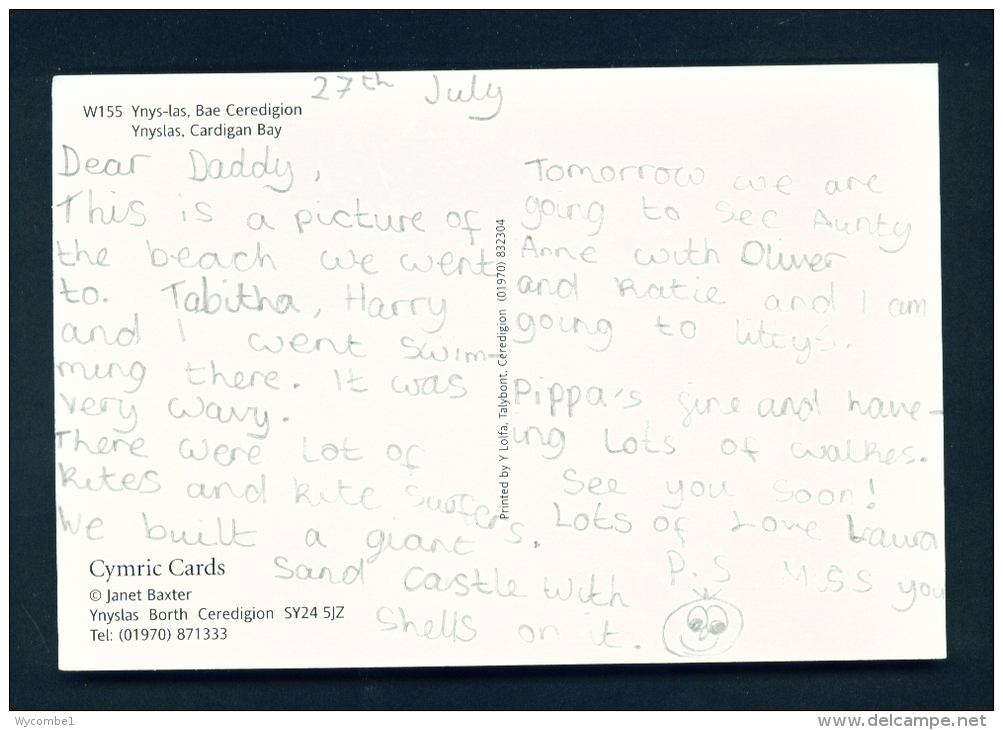 27th July
W155 Ynys-las, Bae Ceredigion
Ynyslas, Cardigan Bay
Dear Daddy,
This is a picture of
the beach we went
to. Tabitha, Harry
and I went swim-
ming there. It was
very wavy.
There were Lot of
kites and kite surfers.
We built a giant
Sand castle with
Shells on it.
Tomorrow we are
going to see Aunty
Anne with Oliver
and Katie and I am
going to littys.
Pippa's fine and have-
ing Lots of walkes.
See you soon!
Lots of Love Laura
P.S Miss you
Printed by Y Lolfa, Talybont, Ceredigion (01970) 832304
Cymric Cards
© Janet Baxter
Ynyslas Borth Ceredigion SY24 5JZ
Tel: (01970) 871333
Wycombe1
www.delcampe.net